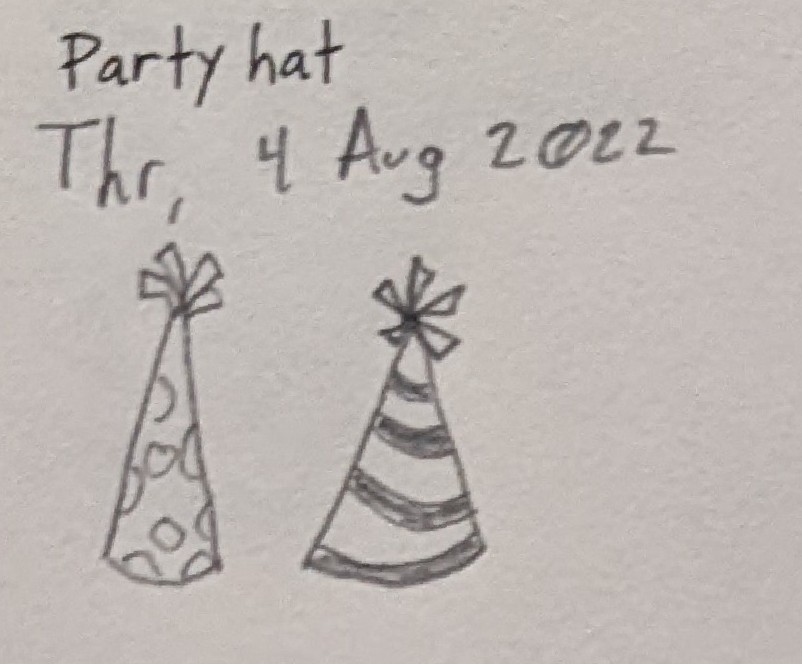 Party hat
Thr, 4 Aug 2022